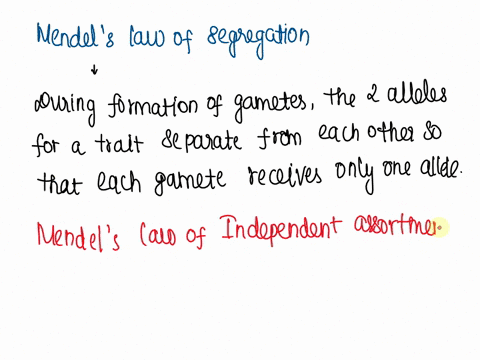 Mendel's law of segregation
↓
During formation of gametes, the 2 alleles
for a trait separate from each other so
that each gamete receives only one allele.
Mendel's law of Independent assortmen